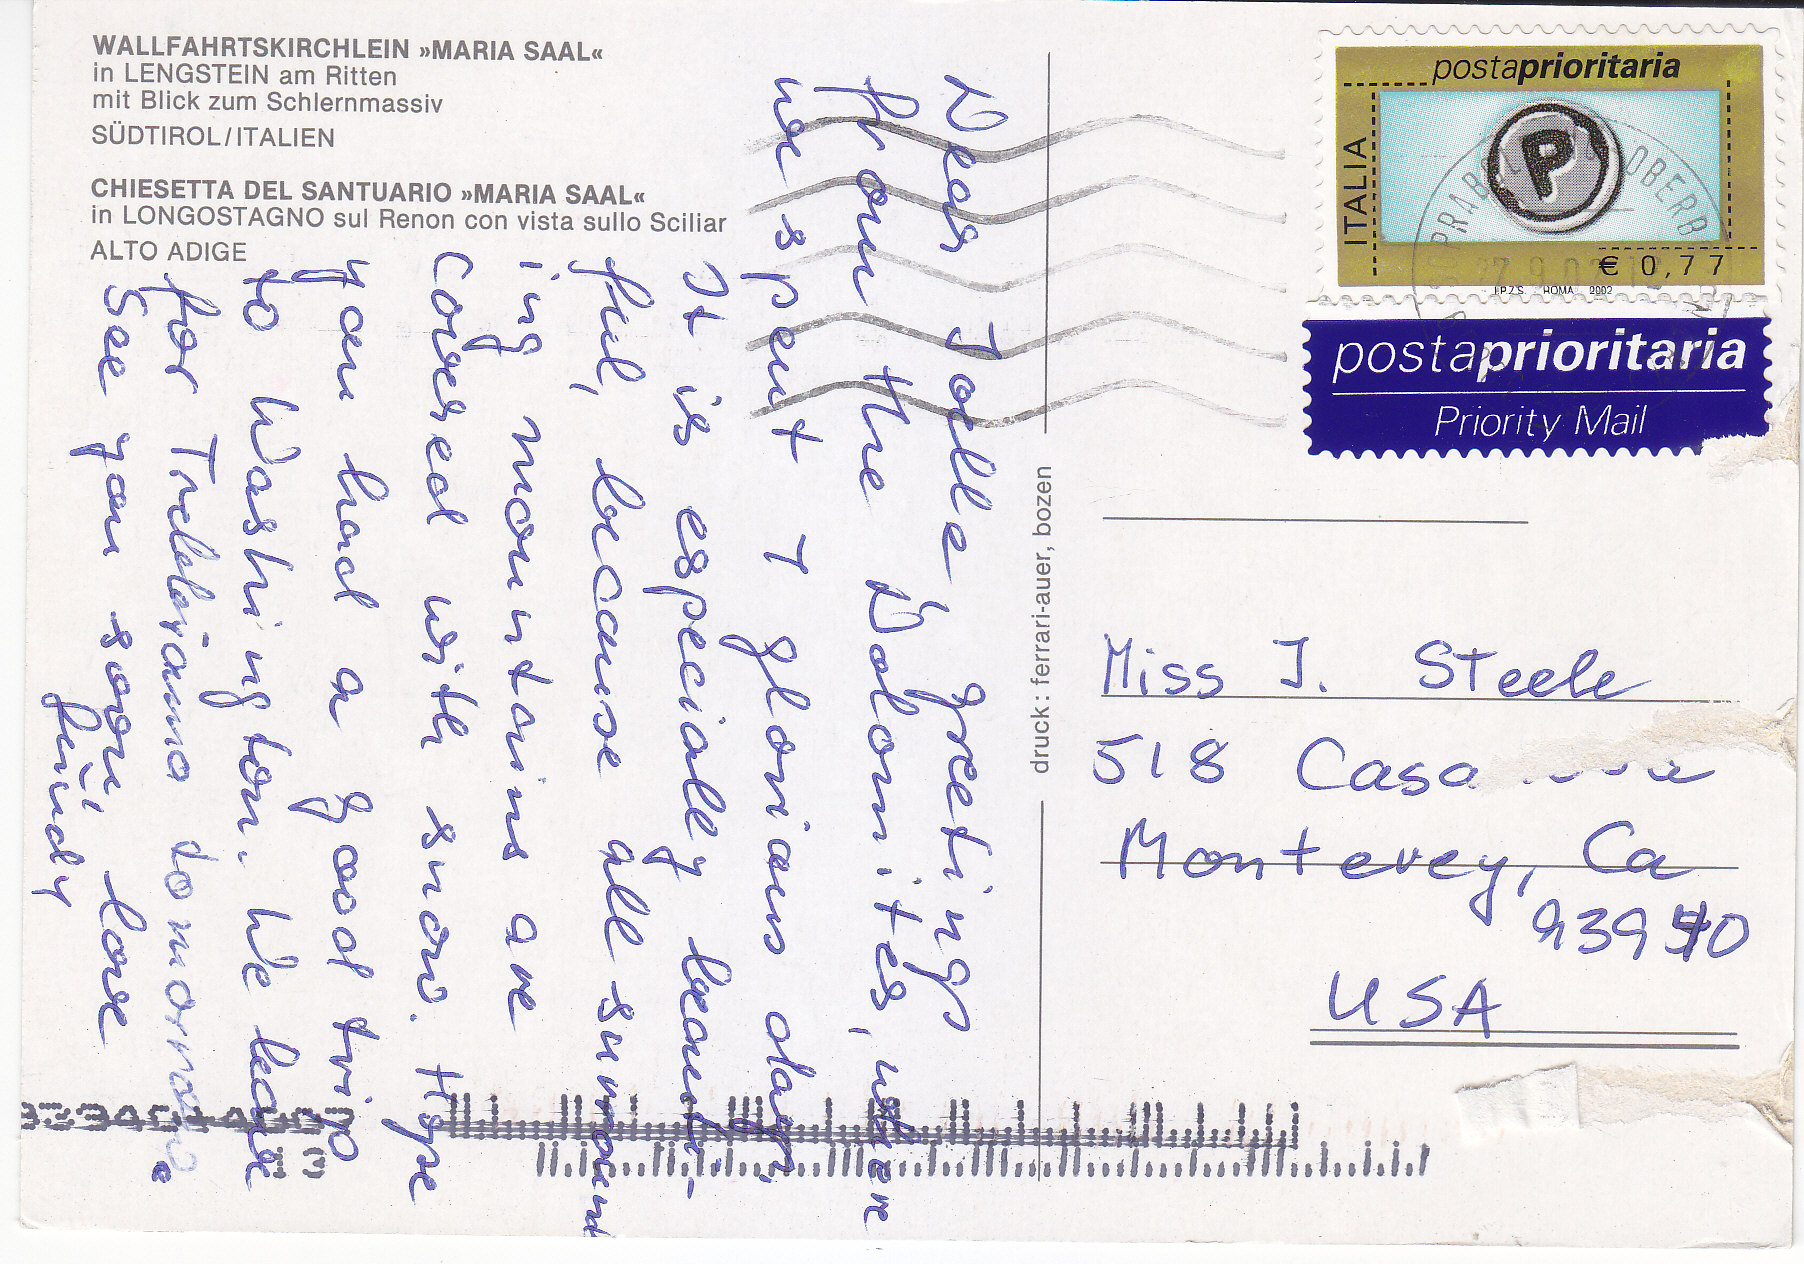 WALLFAHRTSKIRCHLEIN »MARIA SAAL«
in LENGSTEIN am Ritten
mit Blick zum Schlernmassiv
SÜDTIROL/ITALIEN
CHIESETTA DEL SANTUARIO »MARIA SAAL«
in LONGOSTAGNO sul Renon con vista sullo Sciliar
ALTO ADIGE
Dear Joelle, greetings
from the Dolomites, where
we spent 7 glorious days.
It is especially beauti-
ful, because all surround
ing mountains are
covered with snow. Hope
you had a good trip
to Washington. We leave
for Trebbiano tomorrow
See you soon! love
druck: ferrari-auer, bozen
postaprioritaria
ITALIA
P
€ 0,77
I.P.Z.S. ROMA 2002
postaprioritaria
Priority Mail
Miss J. Steele
518 Casa
Monterey, Ca
93940
USA